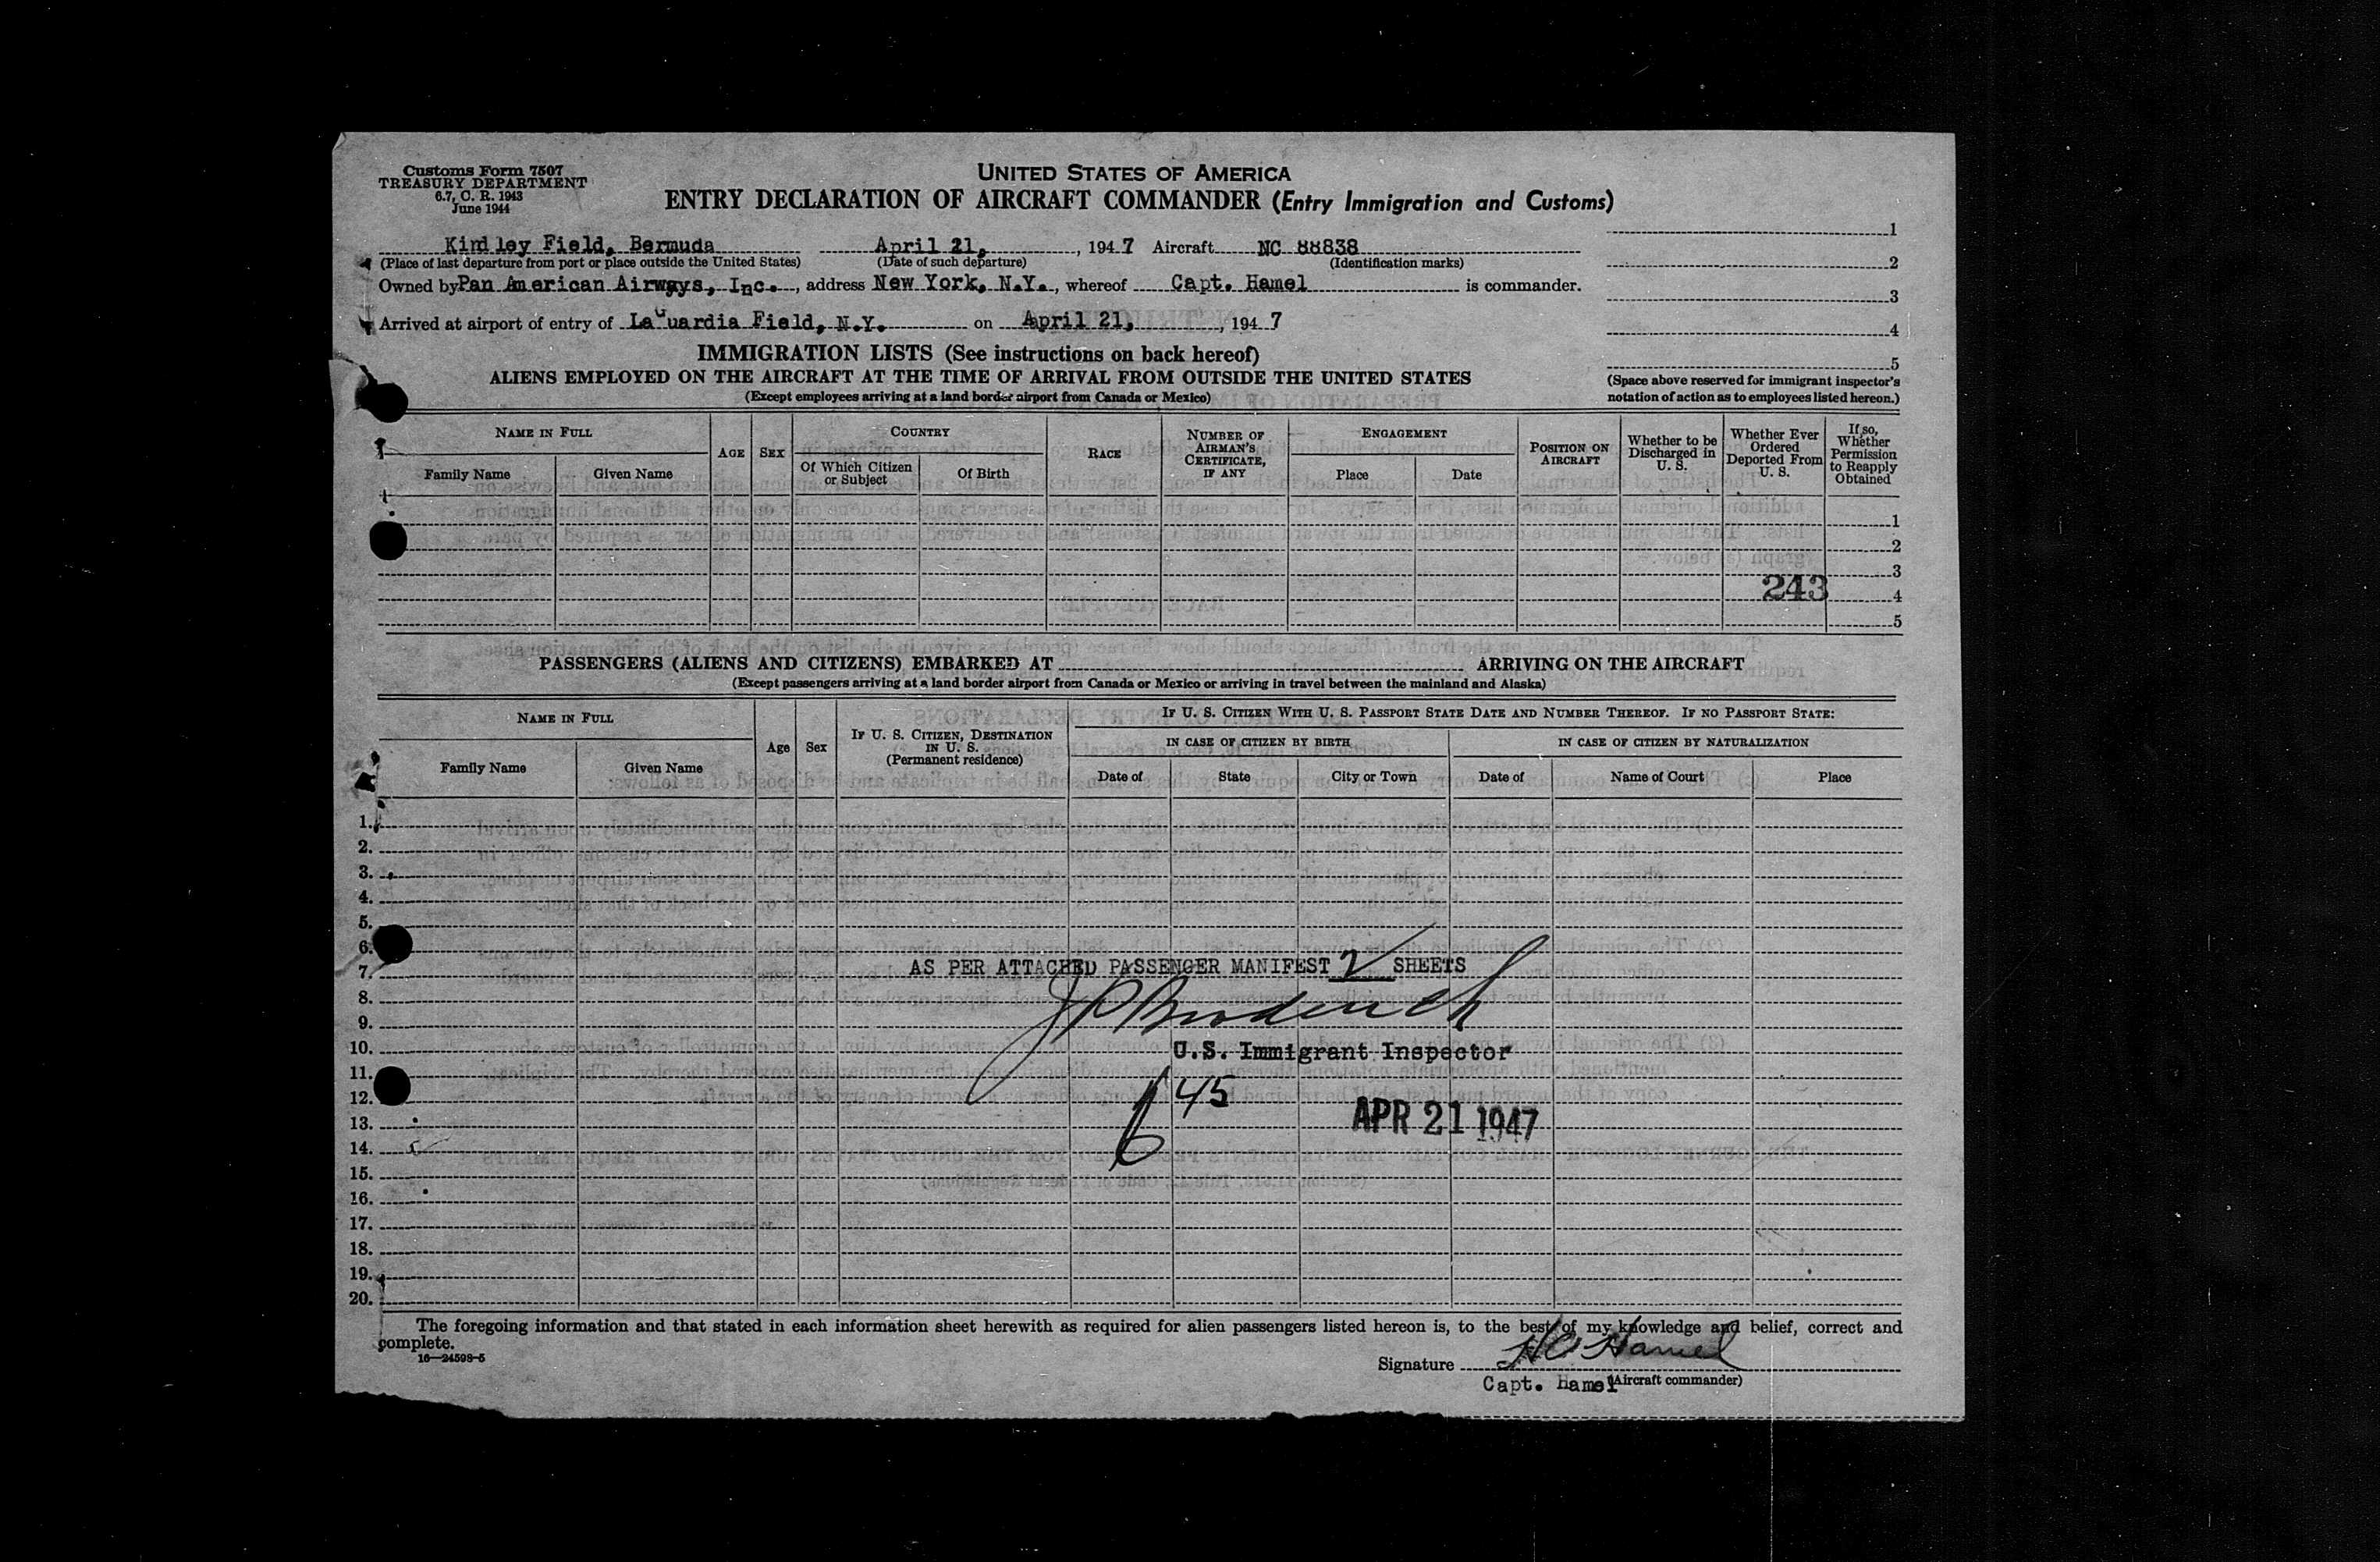 Customs Form 7507
TREASURY DEPARTMENT
6.7, C. R. 1943
June 1944
UNITED STATES OF AMERICA
ENTRY DECLARATION OF AIRCRAFT COMMANDER (Entry Immigration and Customs)
Kindley Field, Bermuda April 21, , 1947 Aircraft NC 88838
(Place of last departure from port or place outside the United States) (Date of such departure) (Identification marks)
Owned by Pan American Airways, Inc. , address New York, N.Y. , whereof Capt. Hamel is commander.
Arrived at airport of entry of LaGuardia Field, N.Y. on April 21, , 1947
1
2
3
4
5
(Space above reserved for immigrant inspector's
notation of action as to employees listed hereon.)
IMMIGRATION LISTS (See instructions on back hereof)
ALIENS EMPLOYED ON THE AIRCRAFT AT THE TIME OF ARRIVAL FROM OUTSIDE THE UNITED STATES
(Except employees arriving at a land border airport from Canada or Mexico)
NAME IN FULL
Family Name Given Name
AGE
SEX
COUNTRY
Of Which Citizen
or Subject
Of Birth
RACE
NUMBER OF
AIRMAN'S
CERTIFICATE,
IF ANY
ENGAGEMENT
Place Date
POSITION ON
AIRCRAFT
Whether to be
Discharged in
U. S.
Whether Ever
Ordered
Deported From
U. S.
If so,
Whether
Permission
to Reapply
Obtained
1
2
3
243
4
5
PASSENGERS (ALIENS AND CITIZENS) EMBARKED AT ARRIVING ON THE AIRCRAFT
(Except passengers arriving at a land border airport from Canada or Mexico or arriving in travel between the mainland and Alaska)
NAME IN FULL
Family Name Given Name
Age
Sex
IF U. S. CITIZEN, DESTINATION
IN U. S.
(Permanent residence)
IF U. S. CITIZEN WITH U. S. PASSPORT STATE DATE AND NUMBER THEREOF. IF NO PASSPORT STATE:
IN CASE OF CITIZEN BY BIRTH
Date of State City or Town
IN CASE OF CITIZEN BY NATURALIZATION
Date of Name of Court Place
1.
2.
3.
4.
5.
6.
7. AS PER ATTACHED PASSENGER MANIFEST 2 SHEETS
8.
9. J P Broderick
10. U.S. Immigrant Inspector
11.
12. 45
13. APR 21 1947
14. 6
15.
16.
17.
18.
19.
20.
The foregoing information and that stated in each information sheet herewith as required for alien passengers listed hereon is, to the best of my knowledge and belief, correct and
complete.
16—24598-5
Signature H C Hamel
Capt. Hamel (Aircraft commander)